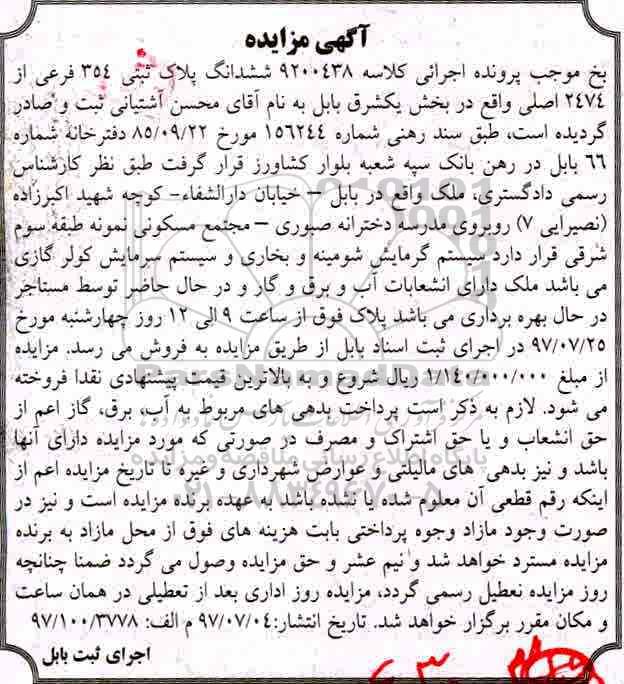 آگهی مزایده
بخ موجب پرونده اجرائی کلاسه ۹۲۰۰۴۳۸ ششدانگ پلاک ثبتی ۳۵۴ فرعی از
۲۴۷۴ اصلی واقع در بخش یکشرق بابل به نام آقای محسن آشتیانی ثبت و صادر
گردیده است، طبق سند رهنی شماره ۱۵۶۲۴۴ مورخ ۸۵/۰۹/۲۲ دفترخانه شماره
۶۶ بابل در رهن بانک سپه شعبه بلوار کشاورز قرار گرفت طبق نظر کارشناس
رسمی دادگستری، ملک واقع در بابل – خیابان دارالشفاء- کوچه شهید اکبرزاده
(نصیرایی ۷) روبروی مدرسه دخترانه صبوری – مجتمع مسکونی نمونه طبقه سوم
شرقی قرار دارد سیستم گرمایش شومینه و بخاری و سیستم سرمایش کولر گازی
می باشد ملک دارای انشعابات آب و برق و گار و در حال حاضر توسط مستاجر
در حال بهره برداری می باشد پلاک فوق از ساعت ۹ الی ۱۲ روز چهارشنبه مورخ
۹۷/۰۷/۲۵ در اجرای ثبت اسناد بابل از طریق مزایده به فروش می رسد. مزایده
از مبلغ ۱/۱۴۰/۰۰۰/۰۰۰ ریال شروع و به بالاترین قیمت پیشنهادی نقدا فروخته
می شود. لازم به ذکر است پرداخت بدهی های مربوط به آب، برق، گاز اعم از
حق انشعاب و یا حق اشتراک و مصرف در صورتی که مورد مزایده دارای آنها
باشد و نیز بدهی های مالیلتی و عوارض شهرداری و غیره تا تاریخ مزایده اعم از
اینکه رقم قطعی آن معلوم شده یا نشده باشد به عهده برنده مزایده است و نیز در
صورت وجود مازاد وجوه پرداختی بابت هزینه های فوق از محل مازاد به برنده
مزایده مسترد خواهد شد و نیم عشر و حق مزایده وصول می گردد ضمنا چنانچه
روز مزایده نعطیل رسمی گردد، مزایده روز اداری بعد از تعطیلی در همان ساعت
و مکان مقرر برگزار خواهد شد. تاریخ انتشار:۹۷/۰۷/۰۴ م الف: ۹۷/۱۰۰/۳۷۷۸
اجرای ثبت بابل
ParsNamadData
پایگاه اطلاع رسانی مناقصه و مزایده
۰۲۱-۸۸۳۴۹۶۷۰-۵